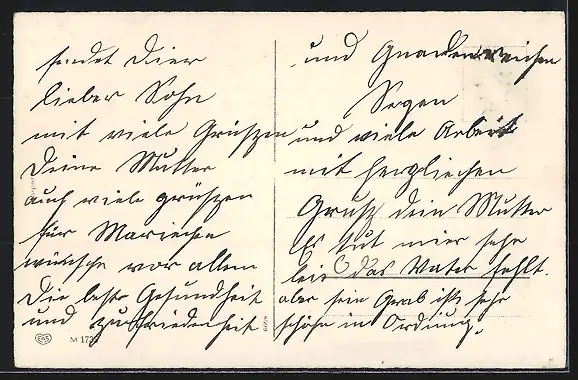 sendet Dier
lieber Sohn
mit viele Grüßen
Deine Mutter
auch viele grüßen
für Mariechen
wünsche vor allem
Die beste Gesundheit
und zufriedenheit
M 1732
und Gnadenreichen
Segen
und viele Arbeit
mit herzliechen
Gruß dein Mutter
Es tut mier sehr
leid das Vater fehlt.
aber sein Grab ist sehr
schöhn in Ordnung.